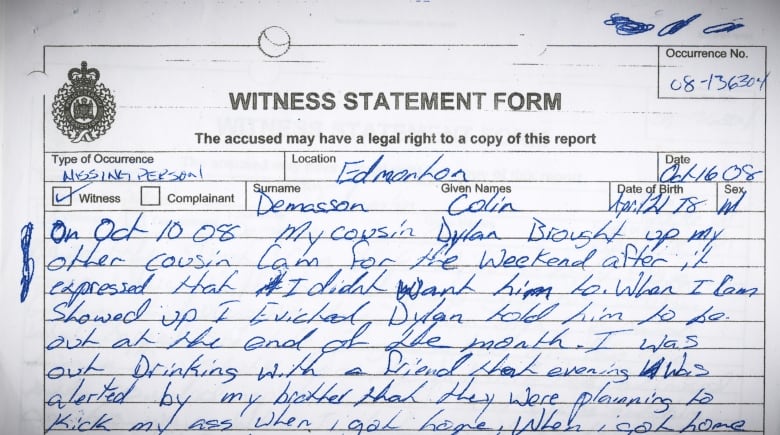 Occurrence No.
08-136304
WITNESS STATEMENT FORM
The accused may have a legal right to a copy of this report
Type of Occurrence
MISSING PERSON
Location
Edmonton
Date
Oct 16 08
Witness
Complainant
Surname
Demasson
Given Names
Colin
Date of Birth
April 21 78
Sex
M
On Oct 10 08 My cousin Dylan Brought up my
other cousin Cam for the weekend after it
expressed that I didnt want him to. When Cam
Showed up I Evicted Dylan told him to be
out at the end of the month. I was
out Drinking with a friend that evening was
alerted by my brother that they were planning to
kick my ass when i got home. When i got home